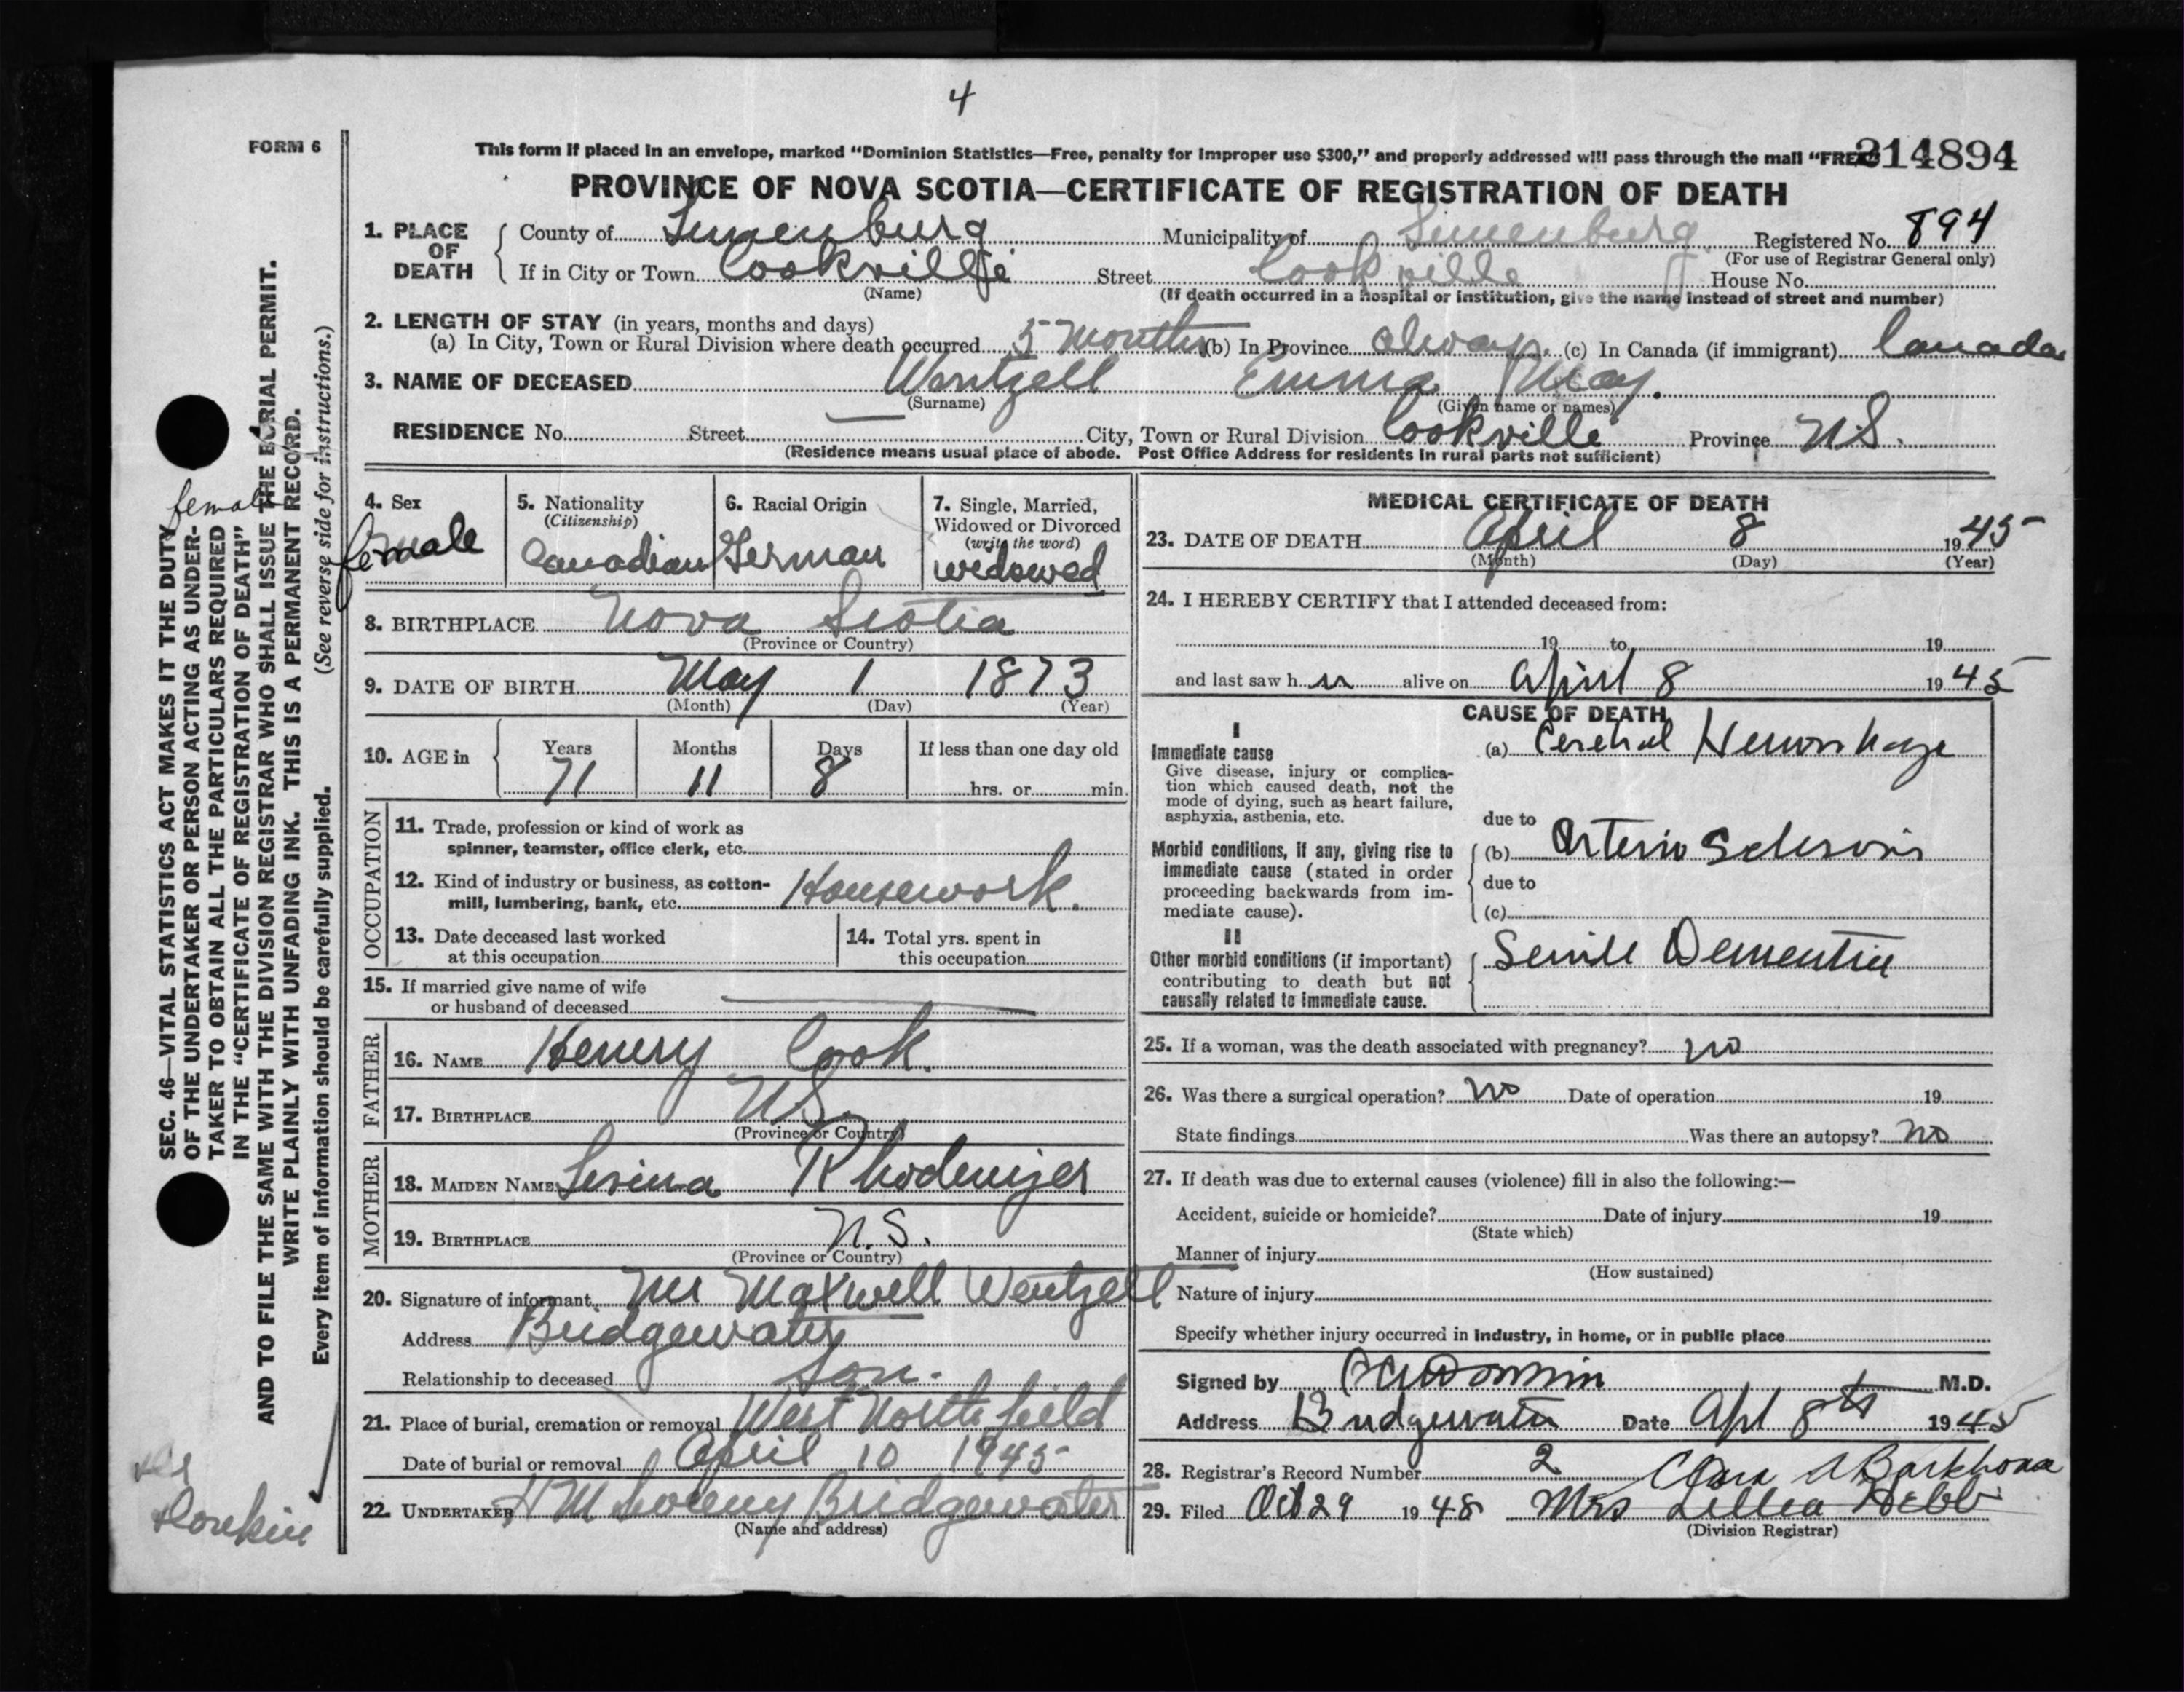 4
FORM 6
This form if placed in an envelope, marked “Dominion Statistics—Free, penalty for improper use $300,” and properly addressed will pass through the mail “FREE”
214894
PROVINCE OF NOVA SCOTIA—CERTIFICATE OF REGISTRATION OF DEATH
1. PLACE OF DEATH County of Lunenburg Municipality of Lunenburg Registered No. 894
(For use of Registrar General only)
If in City or Town Cookville Street Cookville House No.
(Name) (If death occurred in a hospital or institution, give the name instead of street and number)
2. LENGTH OF STAY (in years, months and days)
(a) In City, Town or Rural Division where death occurred 5 Months (b) In Province always (c) In Canada (if immigrant) Canada
3. NAME OF DECEASED Wentzell Emma May.
(Surname) (Given name or names)
RESIDENCE No. Street City, Town or Rural Division Cookville Province N.S.
(Residence means usual place of abode. Post Office Address for residents in rural parts not sufficient)
4. Sex female
5. Nationality (Citizenship) Canadian
6. Racial Origin German
7. Single, Married, Widowed or Divorced (write the word) widowed
8. BIRTHPLACE Nova Scotia
(Province or Country)
9. DATE OF BIRTH May 1 1873
(Month) (Day) (Year)
10. AGE in Years 71 Months 11 Days 8 If less than one day old
hrs. or min.
OCCUPATION
11. Trade, profession or kind of work as
spinner, teamster, office clerk, etc.
12. Kind of industry or business, as cotton-
mill, lumbering, bank, etc. Housework.
13. Date deceased last worked
at this occupation
14. Total yrs. spent in
this occupation
15. If married give name of wife
or husband of deceased
FATHER
16. NAME Henery Cook.
17. BIRTHPLACE N.S.
(Province or Country)
MOTHER
18. MAIDEN NAME Rhodenizer
19. BIRTHPLACE N.S.
(Province or Country)
20. Signature of informant Mr Maxwell Wentzell
Address Bridgewater
Relationship to deceased Son.
21. Place of burial, cremation or removal West Northfield
Date of burial or removal April 10 1945
22. UNDERTAKER H M Bridgewater
(Name and address)
MEDICAL CERTIFICATE OF DEATH
23. DATE OF DEATH April 8 1945
(Month) (Day) (Year)
24. I HEREBY CERTIFY that I attended deceased from:
19 to 19
and last saw h er alive on April 8 1945
CAUSE OF DEATH
I
Immediate cause (a) Cerebral Hemorrhage
Give disease, injury or complica-
tion which caused death, not the
mode of dying, such as heart failure,
asphyxia, asthenia, etc.
due to
Morbid conditions, if any, giving rise to (b) Arterio Sclerosis
immediate cause (stated in order
proceeding backwards from im- due to
mediate cause). (c)
II
Other morbid conditions (if important) Senile Dementia
contributing to death but not
causally related to immediate cause.
25. If a woman, was the death associated with pregnancy? no
26. Was there a surgical operation? no Date of operation 19
State findings Was there an autopsy? no
27. If death was due to external causes (violence) fill in also the following:—
Accident, suicide or homicide? Date of injury 19
(State which)
Manner of injury
(How sustained)
Nature of injury
Specify whether injury occurred in industry, in home, or in public place
Signed by M.D.
Address Bridgewater Date Apl 8th 1945
28. Registrar's Record Number 2 Clara A Barkhouse
29. Filed Oct 29 1945 Mrs Lillia Hebb
(Division Registrar)
female
SEC. 46—VITAL STATISTICS ACT MAKES IT THE DUTY
OF THE UNDERTAKER OR PERSON ACTING AS UNDER-
TAKER TO OBTAIN ALL THE PARTICULARS REQUIRED
IN THE “CERTIFICATE OF REGISTRATION OF DEATH”
AND TO FILE THE SAME WITH THE DIVISION REGISTRAR WHO SHALL ISSUE THE BURIAL PERMIT.
WRITE PLAINLY WITH UNFADING INK. THIS IS A PERMANENT RECORD.
Every item of information should be carefully supplied. (See reverse side for instructions.)